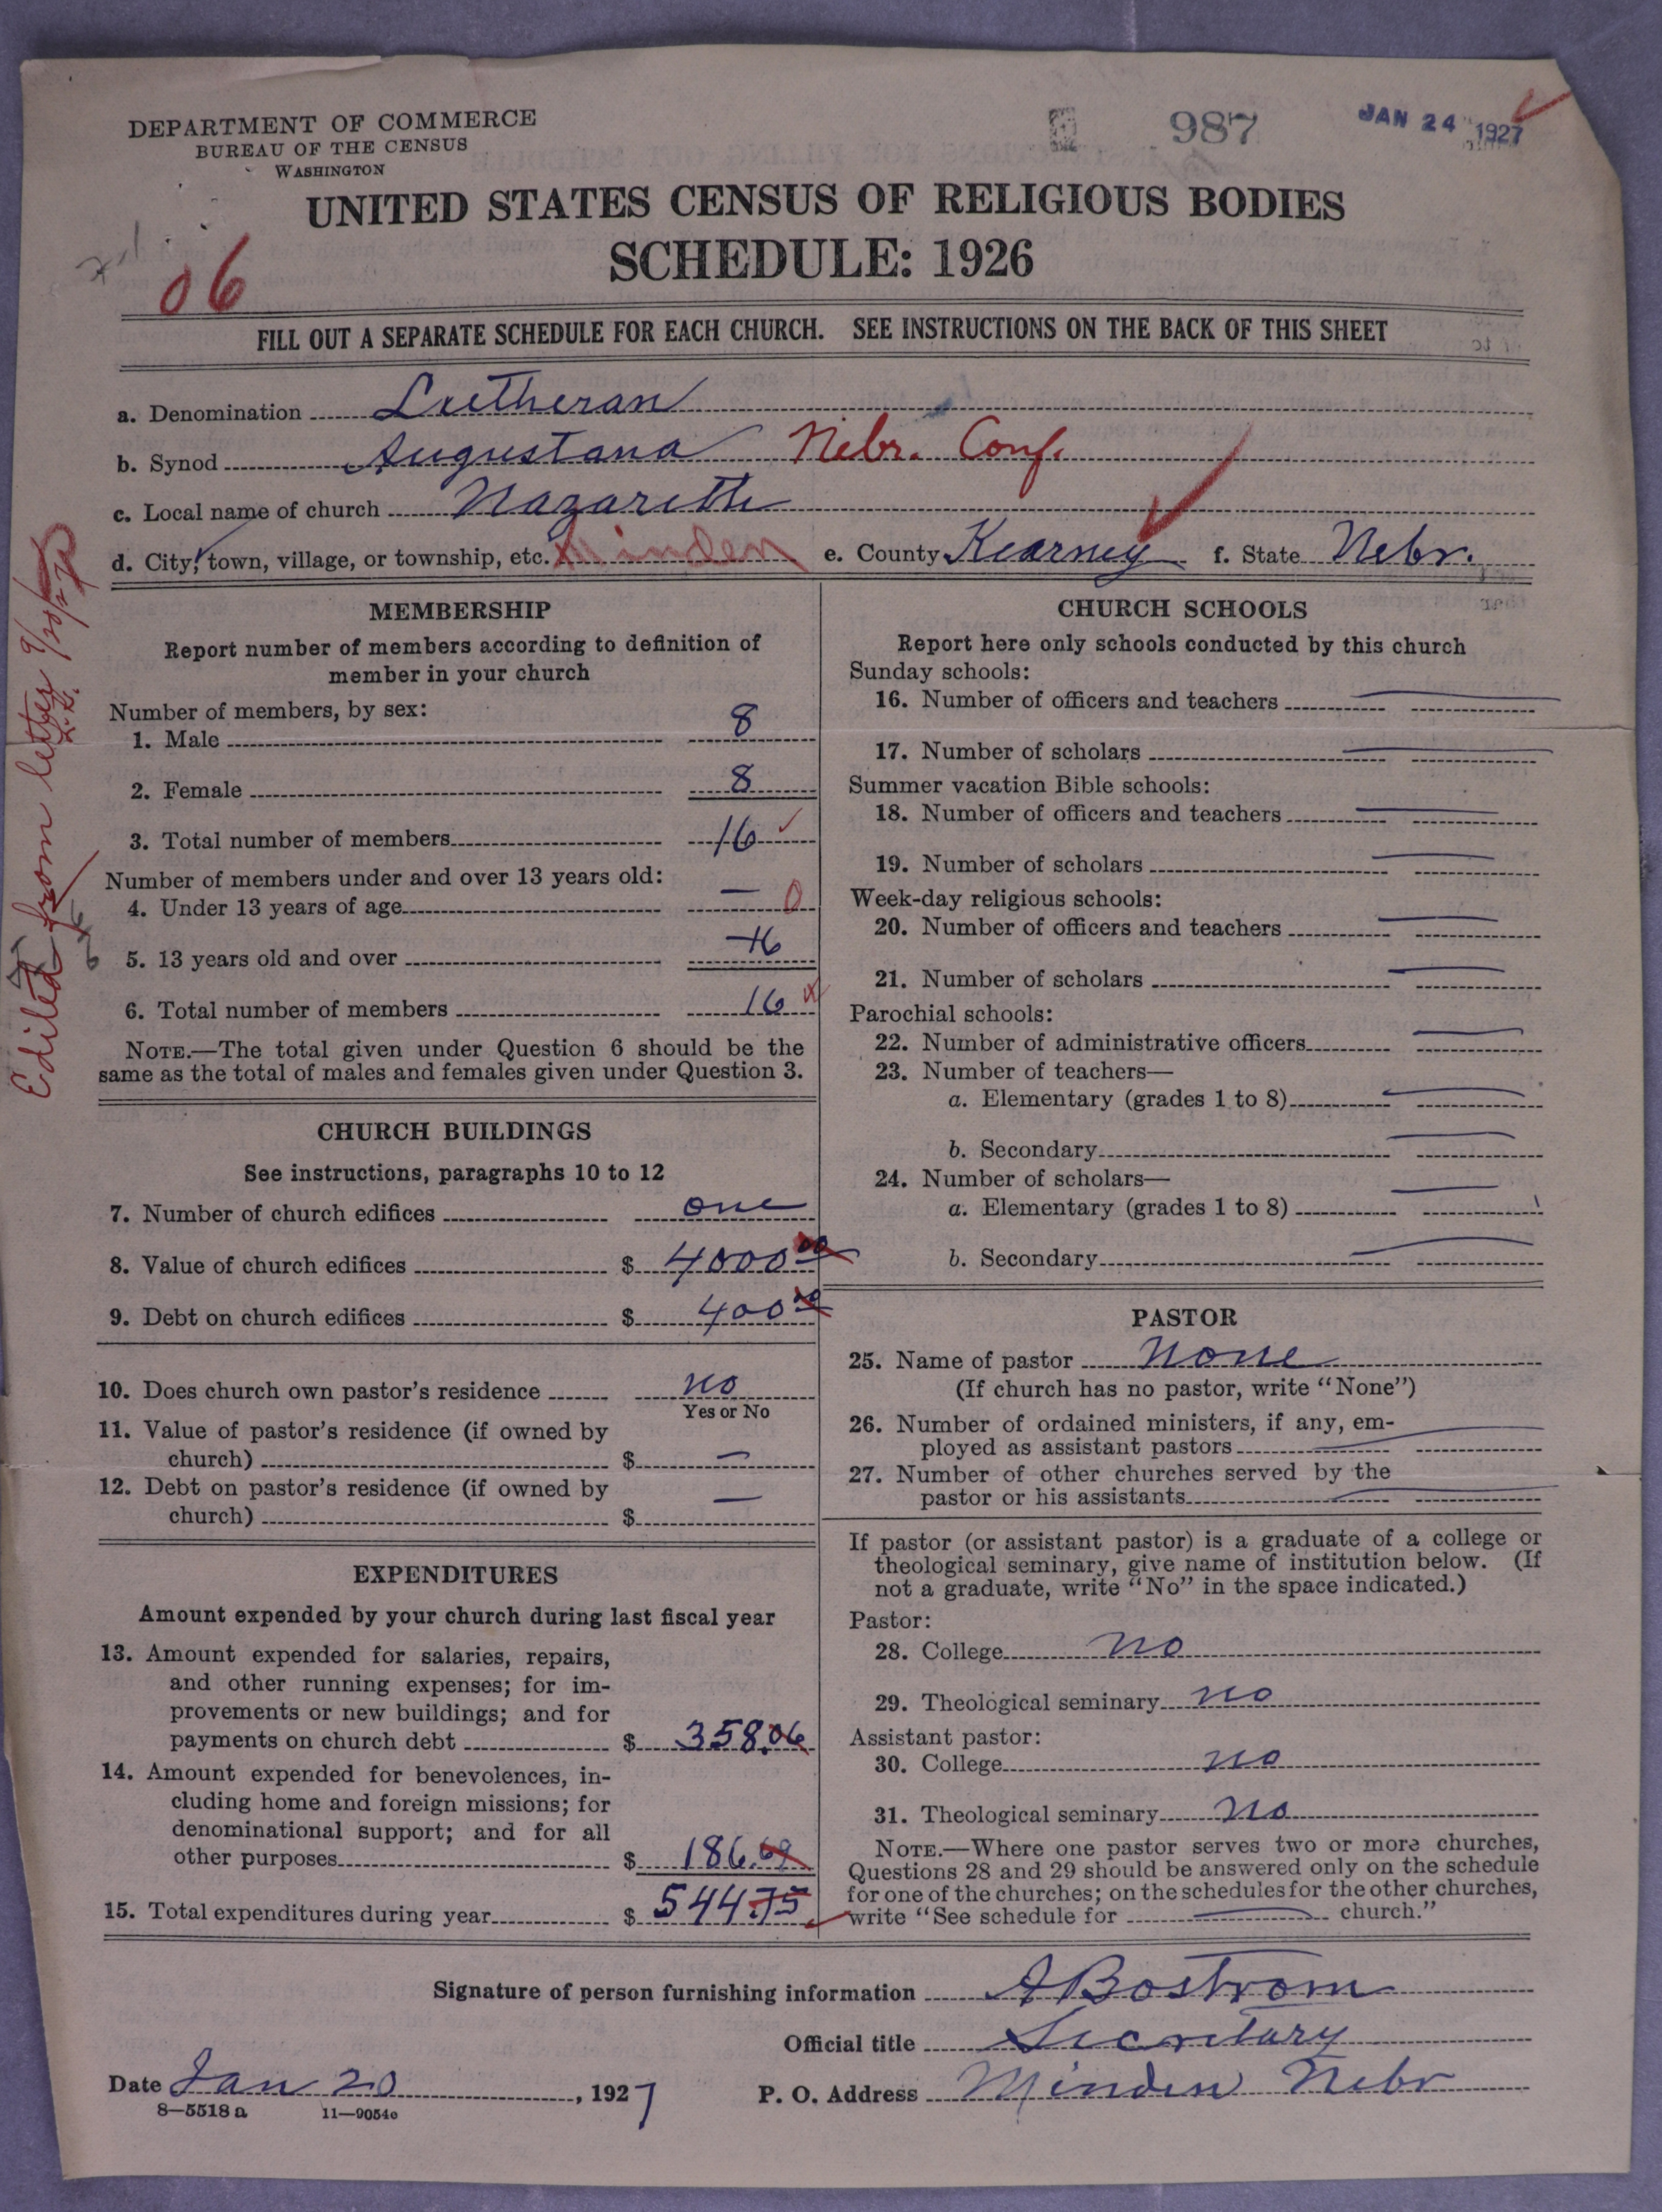 DEPARTMENT OF COMMERCE
BUREAU OF THE CENSUS
WASHINGTON
987
JAN 24 1927
UNITED STATES CENSUS OF RELIGIOUS BODIES
SCHEDULE: 1926
06
FILL OUT A SEPARATE SCHEDULE FOR EACH CHURCH. SEE INSTRUCTIONS ON THE BACK OF THIS SHEET
a. Denomination Lutheran
b. Synod Augustana Nebr. Conf.
c. Local name of church Nazareth
d. City, town, village, or township, etc. Minden e. County Kearney f. State Nebr.
Edited from letter
MEMBERSHIP
Report number of members according to definition of
member in your church
Number of members, by sex:
1. Male 8
2. Female 8
3. Total number of members 16
Number of members under and over 13 years old:
4. Under 13 years of age — 0
5. 13 years old and over 16
6. Total number of members 16
NOTE.—The total given under Question 6 should be the
same as the total of males and females given under Question 3.
CHURCH BUILDINGS
See instructions, paragraphs 10 to 12
7. Number of church edifices one
8. Value of church edifices $ 4000 00
9. Debt on church edifices $ 400 00
10. Does church own pastor's residence no
Yes or No
11. Value of pastor's residence (if owned by
church) $ —
12. Debt on pastor's residence (if owned by
church) $ —
EXPENDITURES
Amount expended by your church during last fiscal year
13. Amount expended for salaries, repairs,
and other running expenses; for im-
provements or new buildings; and for
payments on church debt $ 358.06
14. Amount expended for benevolences, in-
cluding home and foreign missions; for
denominational support; and for all
other purposes $ 186.69
15. Total expenditures during year $ 544.75
CHURCH SCHOOLS
Report here only schools conducted by this church
Sunday schools:
16. Number of officers and teachers —
17. Number of scholars —
Summer vacation Bible schools:
18. Number of officers and teachers —
19. Number of scholars —
Week-day religious schools:
20. Number of officers and teachers —
21. Number of scholars —
Parochial schools:
22. Number of administrative officers —
23. Number of teachers—
a. Elementary (grades 1 to 8) —
b. Secondary —
24. Number of scholars—
a. Elementary (grades 1 to 8) —
b. Secondary —
PASTOR
25. Name of pastor None
(If church has no pastor, write "None")
26. Number of ordained ministers, if any, em-
ployed as assistant pastors —
27. Number of other churches served by the
pastor or his assistants —
If pastor (or assistant pastor) is a graduate of a college or
theological seminary, give name of institution below. (If
not a graduate, write "No" in the space indicated.)
Pastor:
28. College no
29. Theological seminary no
Assistant pastor:
30. College no
31. Theological seminary no
NOTE.—Where one pastor serves two or more churches,
Questions 28 and 29 should be answered only on the schedule
for one of the churches; on the schedules for the other churches,
write "See schedule for — church."
Signature of person furnishing information A Bostrom
Official title Secretary
Date Jan 20, 1927 P. O. Address Minden Nebr
8—5518 a 11—9054c